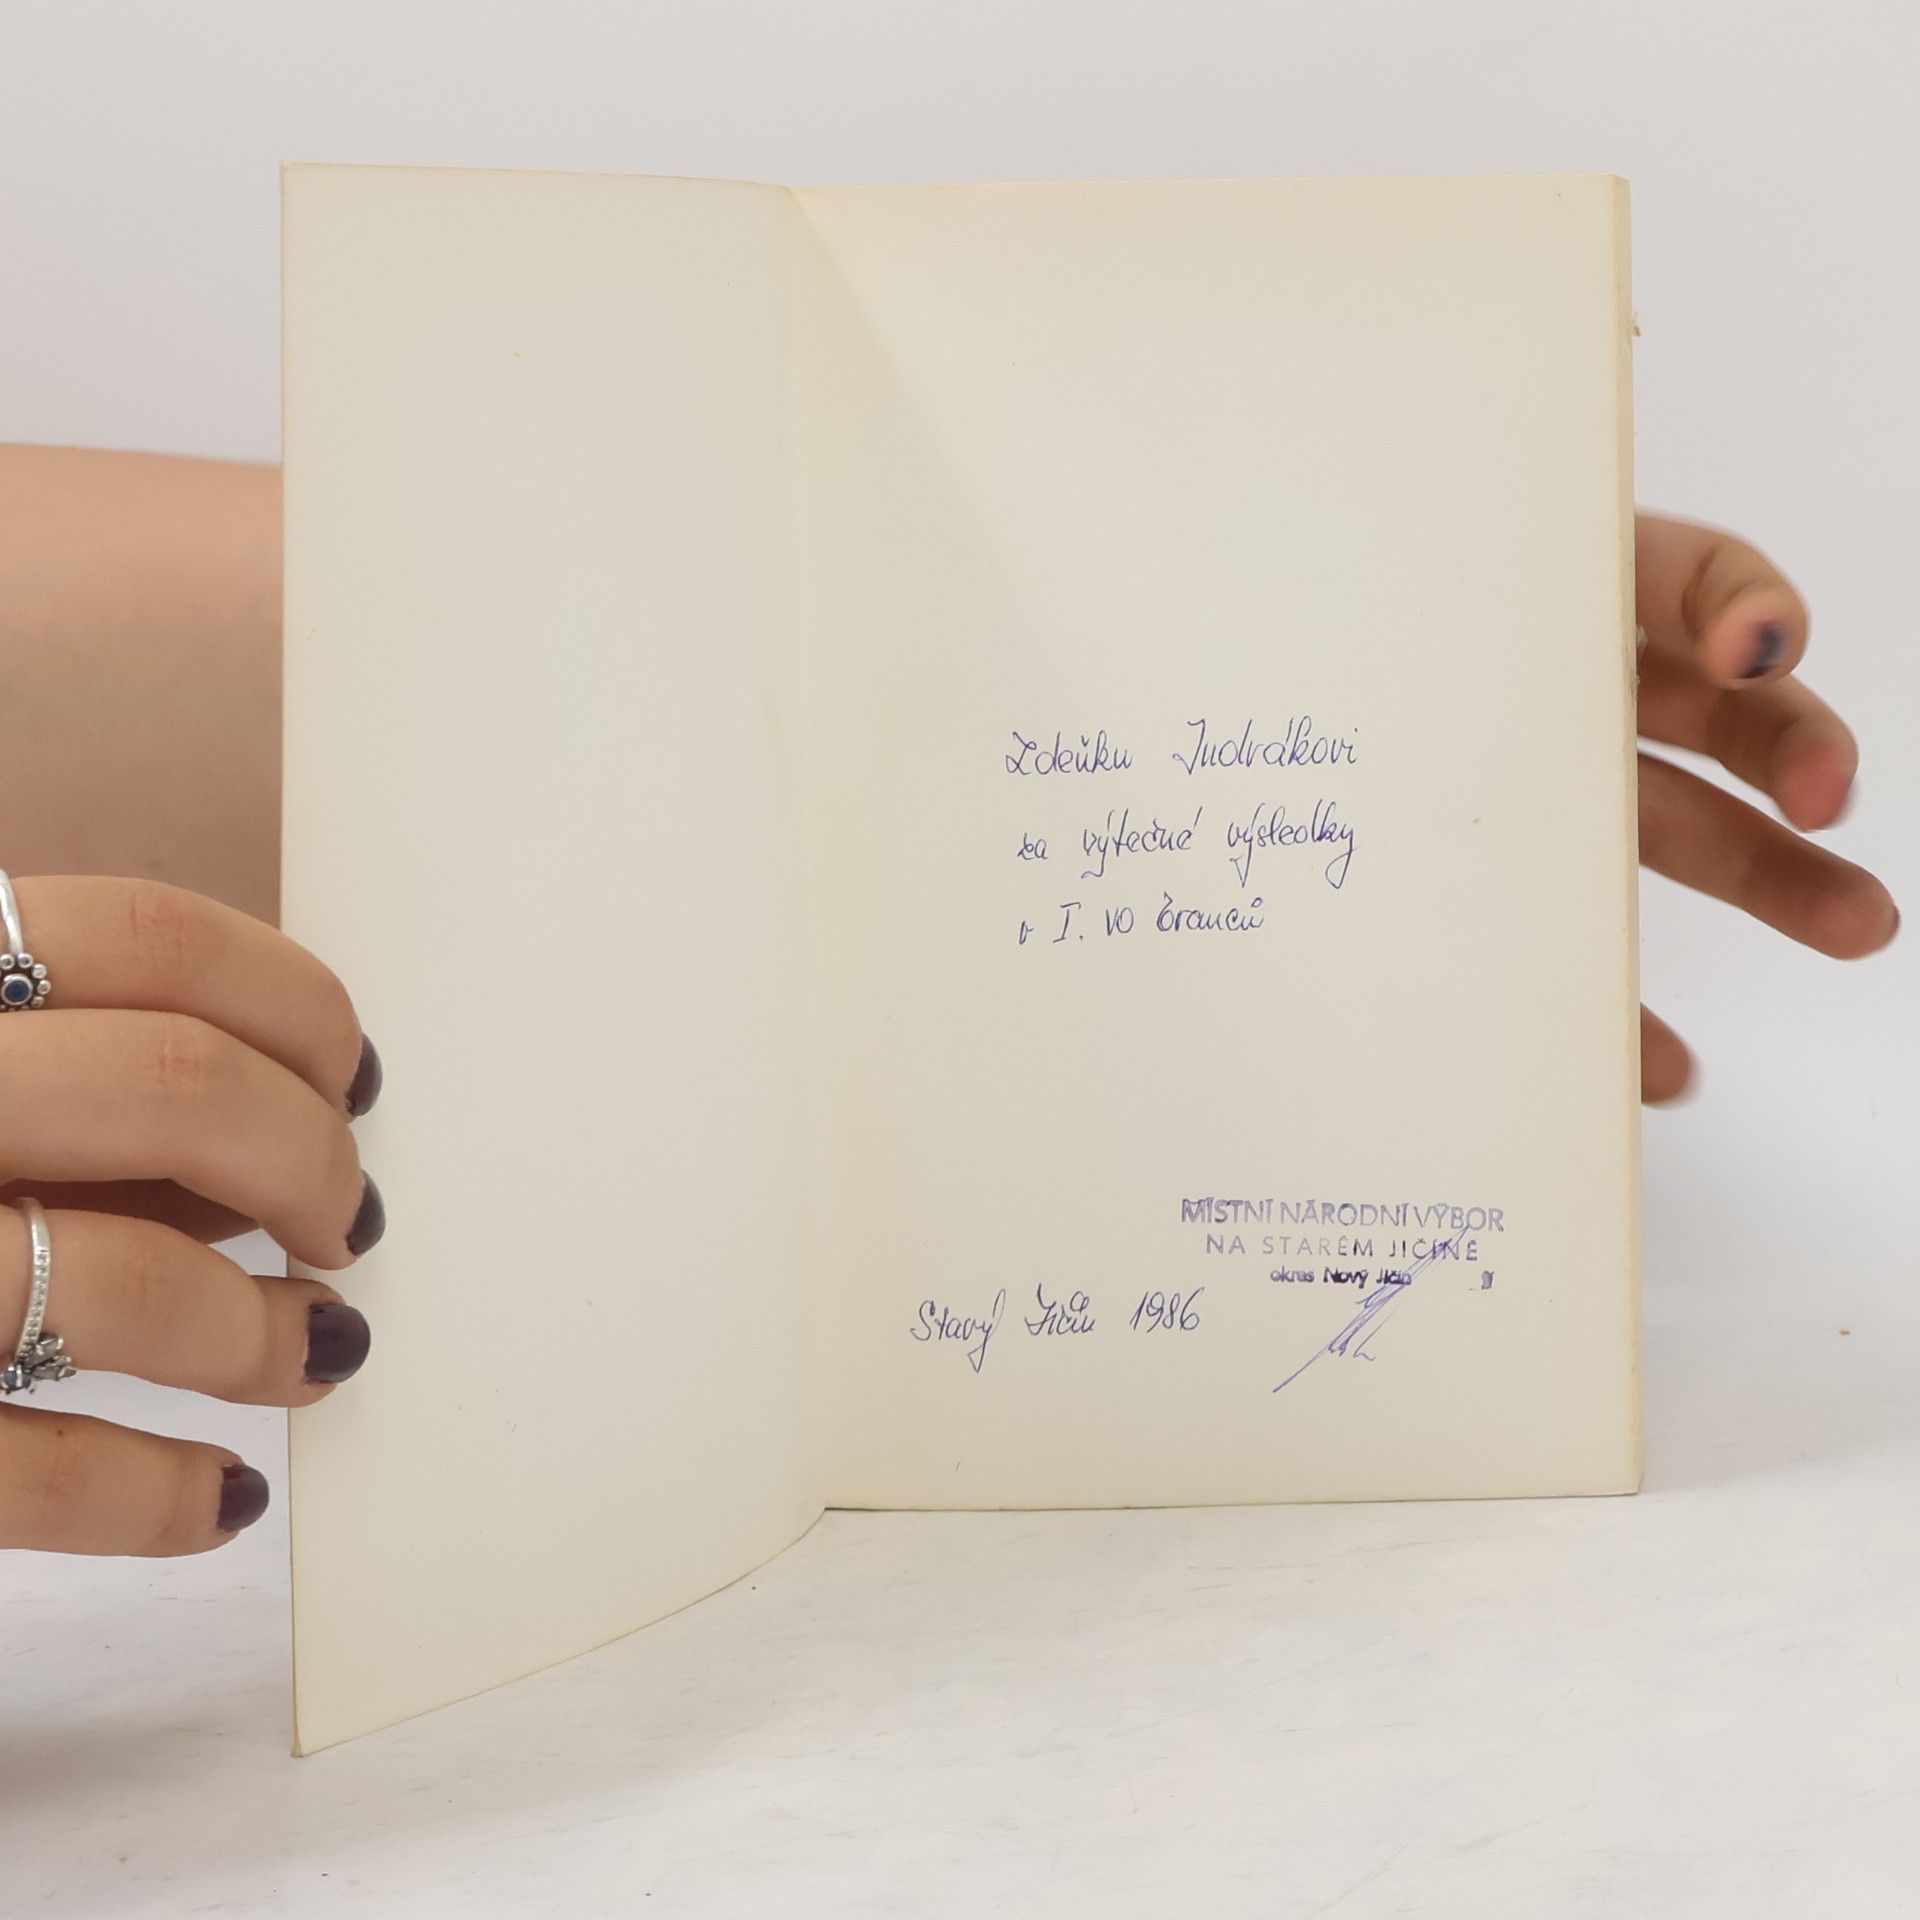 Zdeňku Jndrákovi
za výtečné výsledky
v I. VO branců
MÍSTNÍ NÁRODNÍ VÝBOR
NA STARÉM JIČÍNĚ
okres Nový Jičín
Starý Jičín 1986